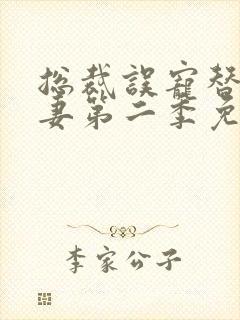 总裁误宠替
妻第二季免
李家公子